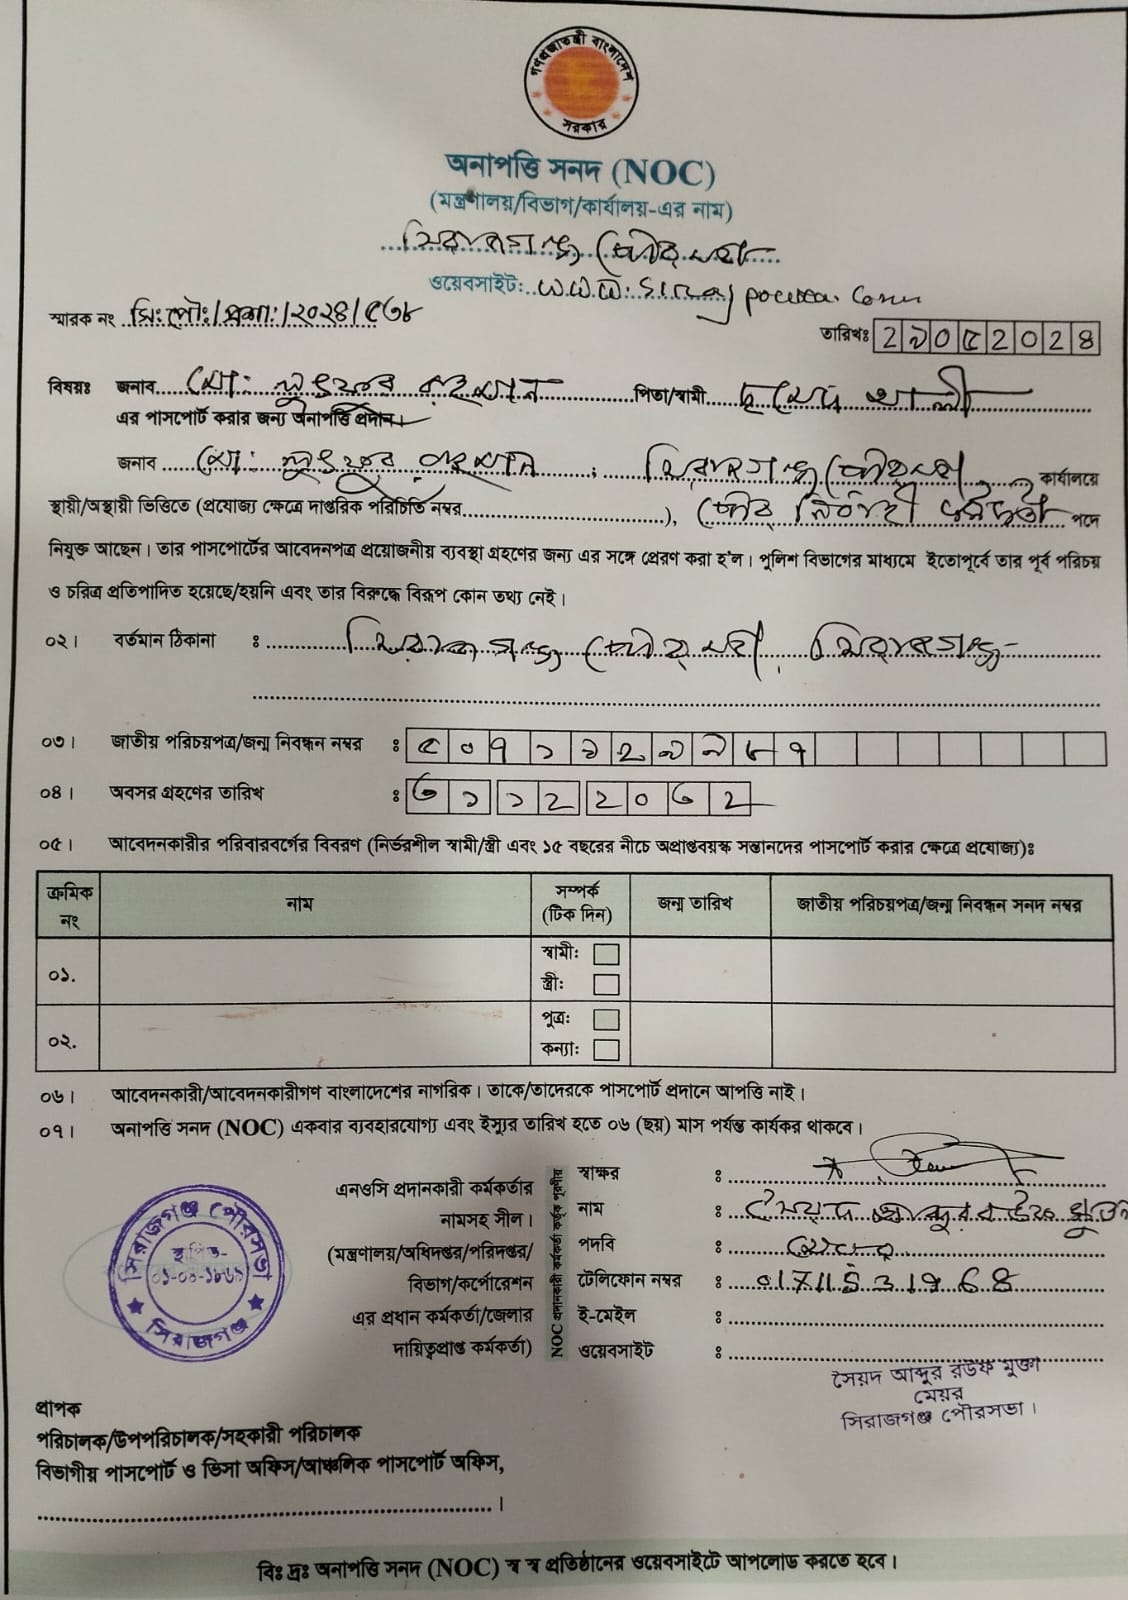 গণপ্রজাতন্ত্রী বাংলাদেশ
সরকার
অনাপত্তি সনদ (NOC)
(মন্ত্রণালয়/বিভাগ/কার্যালয়-এর নাম)
সিরাজগঞ্জ পৌরসভা
ওয়েবসাইট:
স্মারক নং সি:পৌ:/প্রশা:/২০২৪/৫৭৮
তারিখঃ ২৯০৫২০২৪
বিষয়ঃ জনাব মো: লুৎফর রহমান পিতা/স্বামী আলী
এর পাসপোর্ট করার জন্য অনাপত্তি প্রদান।
জনাব মো: লুৎফর রহমান , সিরাজগঞ্জ পৌরসভা কার্যালয়ে
স্থায়ী/অস্থায়ী ভিত্তিতে (প্রযোজ্য ক্ষেত্রে দাপ্তরিক পরিচিতি নম্বর ), পৌর নির্বাহী কর্মকর্তা পদে
নিযুক্ত আছেন। তার পাসপোর্টের আবেদনপত্র প্রয়োজনীয় ব্যবস্থা গ্রহণের জন্য এর সঙ্গে প্রেরণ করা হ'ল। পুলিশ বিভাগের মাধ্যমে ইতোপূর্বে তার পূর্ব পরিচয়
ও চরিত্র প্রতিপাদিত হয়েছে/হয়নি এবং তার বিরুদ্ধে বিরূপ কোন তথ্য নেই।
০২। বর্তমান ঠিকানা : সিরাজগঞ্জ পৌরসভা, সিরাজগঞ্জ
০৩। জাতীয় পরিচয়পত্র/জন্ম নিবন্ধন নম্বর : ৫০৭১১২৯৯৮৭
০৪। অবসর গ্রহণের তারিখ : ৩১১২২০৩২
০৫। আবেদনকারীর পরিবারবর্গের বিবরণ (নির্ভরশীল স্বামী/স্ত্রী এবং ১৫ বছরের নীচে অপ্রাপ্তবয়স্ক সন্তানদের পাসপোর্ট করার ক্ষেত্রে প্রযোজ্য)ঃ
ক্রমিক নং নাম সম্পর্ক (টিক দিন) জন্ম তারিখ জাতীয় পরিচয়পত্র/জন্ম নিবন্ধন সনদ নম্বর
০১. স্বামী:
স্ত্রী:
০২. পুত্র:
কন্যা:
০৬। আবেদনকারী/আবেদনকারীগণ বাংলাদেশের নাগরিক। তাকে/তাদেরকে পাসপোর্ট প্রদানে আপত্তি নাই।
০৭। অনাপত্তি সনদ (NOC) একবার ব্যবহারযোগ্য এবং ইস্যুর তারিখ হতে ০৬ (ছয়) মাস পর্যন্ত কার্যকর থাকবে।
এনওসি প্রদানকারী কর্মকর্তার
নামসহ সীল।
(মন্ত্রণালয়/অধিদপ্তর/পরিদপ্তর/
বিভাগ/কর্পোরেশন
এর প্রধান কর্মকর্তা/জেলার
দায়িত্বপ্রাপ্ত কর্মকর্তা)
NOC প্রদানকারী কর্মকর্তা কর্তৃক পূরণীয়
স্বাক্ষর :
নাম : সৈয়দ আব্দুর রউফ মুক্তা
পদবি : মেয়র
টেলিফোন নম্বর : 01711531968
ই-মেইল :
ওয়েবসাইট :
সৈয়দ আব্দুর রউফ মুক্তা
মেয়র
সিরাজগঞ্জ পৌরসভা।
সিরাজগঞ্জ পৌরসভা
স্থাপিত-
০১-০৯-১৮৬৯
সিরাজগঞ্জ
প্রাপক
পরিচালক/উপপরিচালক/সহকারী পরিচালক
বিভাগীয় পাসপোর্ট ও ভিসা অফিস/আঞ্চলিক পাসপোর্ট অফিস,
।
বিঃ দ্রঃ অনাপত্তি সনদ (NOC) স্ব স্ব প্রতিষ্ঠানের ওয়েবসাইটে আপলোড করতে হবে।